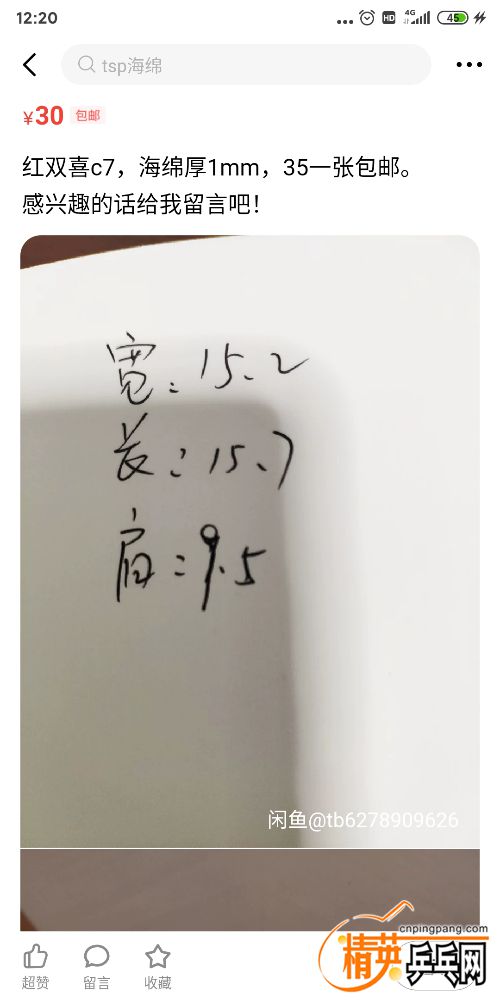 12:20
HD
4G
45
tsp海绵
¥30 包邮
红双喜c7，海绵厚1mm，35一张包邮。
感兴趣的话给我留言吧！
宽：15.2
长：15.7
肩：9.5
闲鱼@tb6278909626
超赞
留言
收藏
cnpingpang.com
精英乒乓网